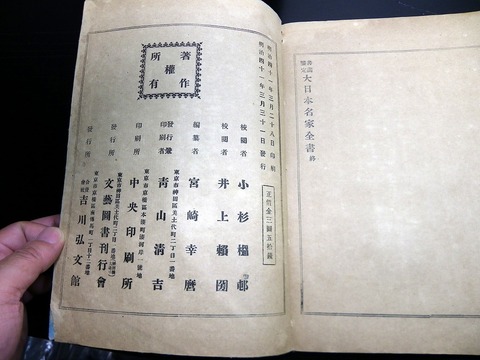 書畫鑒定大日本名家全書 終
明治四十一年三月二十八日印刷
明治四十一年三月三十一日發行
正價金三圓五拾錢
著作權所有
校閲者 小杉榲邨
校閲者 井上賴圀
編纂者 宮崎幸麿
東京市神田區美土代町二丁目一番地
發行兼印刷者 靑山淸吉
東京市京橋區本湊町
印刷所 中央印刷所
東京市神田區美土代町二丁目一番地
發行所 文藝圖書刊行會
發行所 吉川弘文館